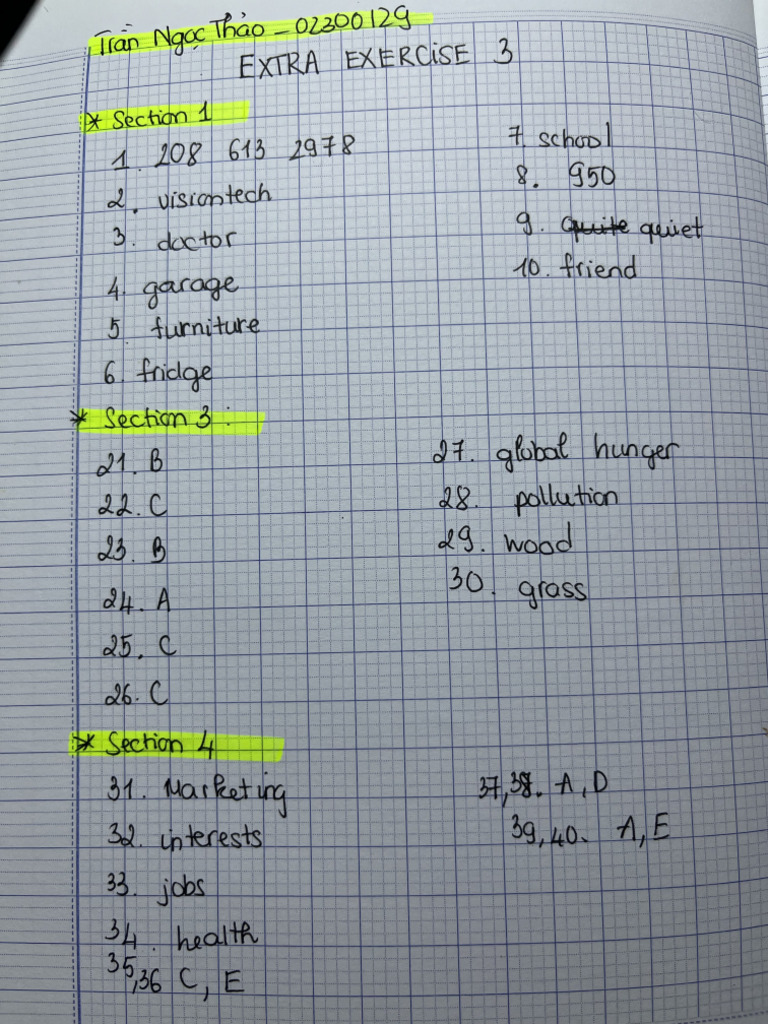 Trần Ngọc Thảo - 02300129
EXTRA EXERCISE 3
* Section 1
1. 208 613 2978
2. visiontech
3. doctor
4. garage
5 furniture
6. fridge
7. school
8. 950
9. quite quiet
10. friend
* Section 3 :
21. B
22. C
23. B
24. A
25. C
26. C
27. global hunger
28. pollution
29. wood
30. grass
* Section 4
31. Marketing
32. interests
33. jobs
34. health
35,36 C, E
37,38. A, D
39,40. A, E